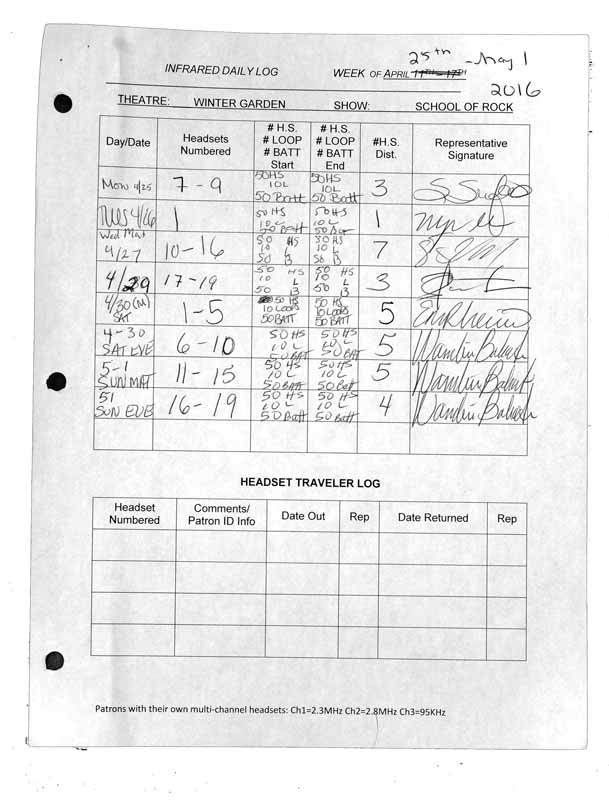 25th - May 1
INFRARED DAILY LOG WEEK OF APRIL 11TH - 17TH
2016
THEATRE: WINTER GARDEN SHOW: SCHOOL OF ROCK
Day/Date
Headsets
Numbered
# H.S.
# LOOP
# BATT
Start
# H.S.
# LOOP
# BATT
End
#H.S.
Dist.
Representative
Signature
Mon 4/25
7 - 9
50 HS
10 L
50 Batt
50 HS
10 L
50 Batt
3
TUES 4/26
1
50 HS
10 L
50 Batt
50 HS
10 L
50 Bat
1
Wed Mat
4/27
10 - 16
50 HS
10 L
50 B
50 HS
10 L
50 B
7
4/29
17 - 19
50 HS
10 L
50 B
50 HS
10 L
50 B
3
4/30 (M)
SAT
1 - 5
50 HS
10 LOOPS
50 BATT
50 HS
10 LOOPS
50 BATT
5
4-30
SAT EVE
6 - 10
50 HS
10 L
50 BATT
50 HS
10 L
50 BATT
5
5-1
SUN MAT
11 - 15
50 HS
10 L
50 BATT
50 HS
10 L
50 Batt
5
51
SUN EVE
16 - 19
50 HS
10 L
50 Batt
50 HS
10 L
50 Batt
4
HEADSET TRAVELER LOG
Headset
Numbered
Comments/
Patron ID Info
Date Out
Rep
Date Returned
Rep
Patrons with their own multi-channel headsets: Ch1=2.3MHz Ch2=2.8MHz Ch3=95KHz